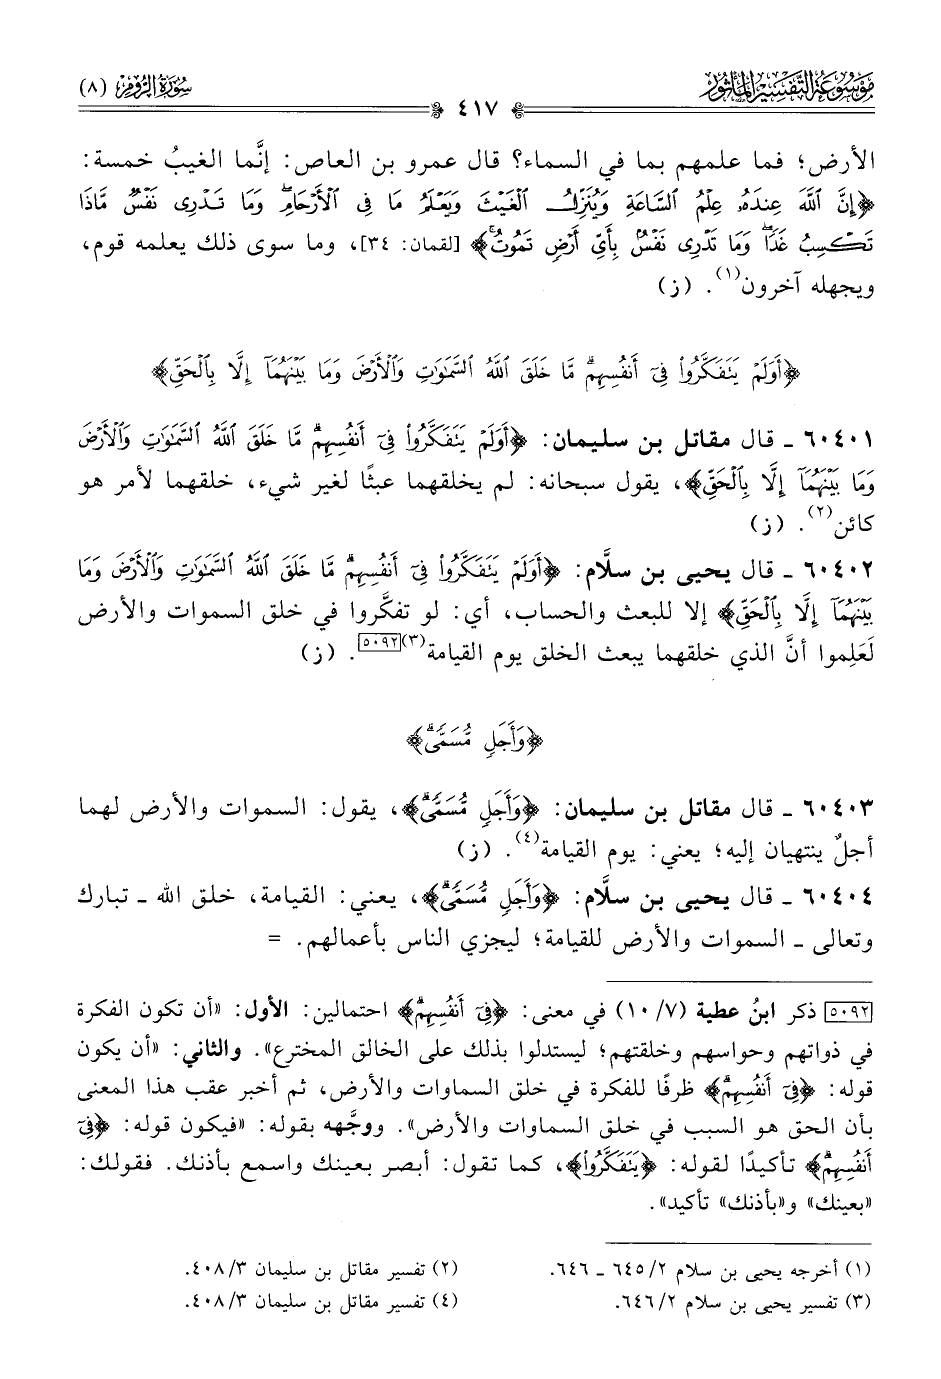 مَوْسُوعَةُ التَّفْسِيرِ المَأْثُورِ
سُورَةُ الرُّومِ (٨)
٤١٧
الأرض؛ فما علمهم بما في السماء؟ قال عمرو بن العاص: إنَّما الغيبُ خمسة:
﴿إِنَّ ٱللَّهَ عِندَهُۥ عِلْمُ ٱلسَّاعَةِ وَيُنَزِّلُ ٱلْغَيْثَ وَيَعْلَمُ مَا فِى ٱلْأَرْحَامِۖ وَمَا تَدْرِى نَفْسٌ مَّاذَا
تَكْسِبُ غَدًاۖ وَمَا تَدْرِى نَفْسٌۢ بِأَىِّ أَرْضٍ تَمُوتُۚ﴾ [لقمان: ٣٤]، وما سوى ذلك يعلمه قوم،
ويجهله آخرون(١). (ز)
﴿أَوَلَمْ يَتَفَكَّرُوا۟ فِىٓ أَنفُسِهِمۗ مَّا خَلَقَ ٱللَّهُ ٱلسَّمَٰوَٰتِ وَٱلْأَرْضَ وَمَا بَيْنَهُمَآ إِلَّا بِٱلْحَقِّ﴾
٦٠٤٠١ ـ قال مقاتل بن سليمان: ﴿أَوَلَمْ يَتَفَكَّرُوا۟ فِىٓ أَنفُسِهِمۗ مَّا خَلَقَ ٱللَّهُ ٱلسَّمَٰوَٰتِ وَٱلْأَرْضَ
وَمَا بَيْنَهُمَآ إِلَّا بِٱلْحَقِّ﴾، يقول سبحانه: لم يخلقهما عبثًا لغير شيء، خلقهما لأمر هو
كائن(٢). (ز)
٦٠٤٠٢ ـ قال يحيى بن سلَّام: ﴿أَوَلَمْ يَتَفَكَّرُوا۟ فِىٓ أَنفُسِهِمۗ مَّا خَلَقَ ٱللَّهُ ٱلسَّمَٰوَٰتِ وَٱلْأَرْضَ وَمَا
بَيْنَهُمَآ إِلَّا بِٱلْحَقِّ﴾ إلا للبعث والحساب، أي: لو تفكَّروا في خلق السموات والأرض
لَعَلِموا أنَّ الذي خلقهما يبعث الخلق يوم القيامة(٣)[٥٠٩٢]. (ز)
﴿وَأَجَلٍ مُّسَمًّىۗ﴾
٦٠٤٠٣ ـ قال مقاتل بن سليمان: ﴿وَأَجَلٍ مُّسَمًّىۗ﴾، يقول: السموات والأرض لهما
أجلٌ ينتهيان إليه؛ يعني: يوم القيامة(٤). (ز)
٦٠٤٠٤ ـ قال يحيى بن سلَّام: ﴿وَأَجَلٍ مُّسَمًّىۗ﴾، يعني: القيامة، خلق الله ـ تبارك
وتعالى ـ السموات والأرض للقيامة؛ ليجزي الناس بأعمالهم. =
[٥٠٩٢] ذكر ابنُ عطية (٧/ ١٠) في معنى: ﴿فِىٓ أَنفُسِهِمۗ﴾ احتمالين: الأول: «أن تكون الفكرة
في ذواتهم وحواسهم وخلقتهم؛ ليستدلوا بذلك على الخالق المخترع». والثاني: «أن يكون
قوله: ﴿فِىٓ أَنفُسِهِمۗ﴾ ظرفًا للفكرة في خلق السماوات والأرض، ثم أخبر عقب هذا المعنى
بأن الحق هو السبب في خلق السماوات والأرض». ووجَّهه بقوله: «فيكون قوله: ﴿فِىٓ
أَنفُسِهِمۗ﴾ تأكيدًا لقوله: ﴿يَتَفَكَّرُوا۟﴾، كما تقول: أبصر بعينك واسمع بأذنك. فقولك:
«بعينك» و«بأذنك» تأكيد».
(١) أخرجه يحيى بن سلام ٢/ ٦٤٥ ـ ٦٤٦.
(٢) تفسير مقاتل بن سليمان ٣/ ٤٠٨.
(٣) تفسير يحيى بن سلام ٢/ ٦٤٦.
(٤) تفسير مقاتل بن سليمان ٣/ ٤٠٨.